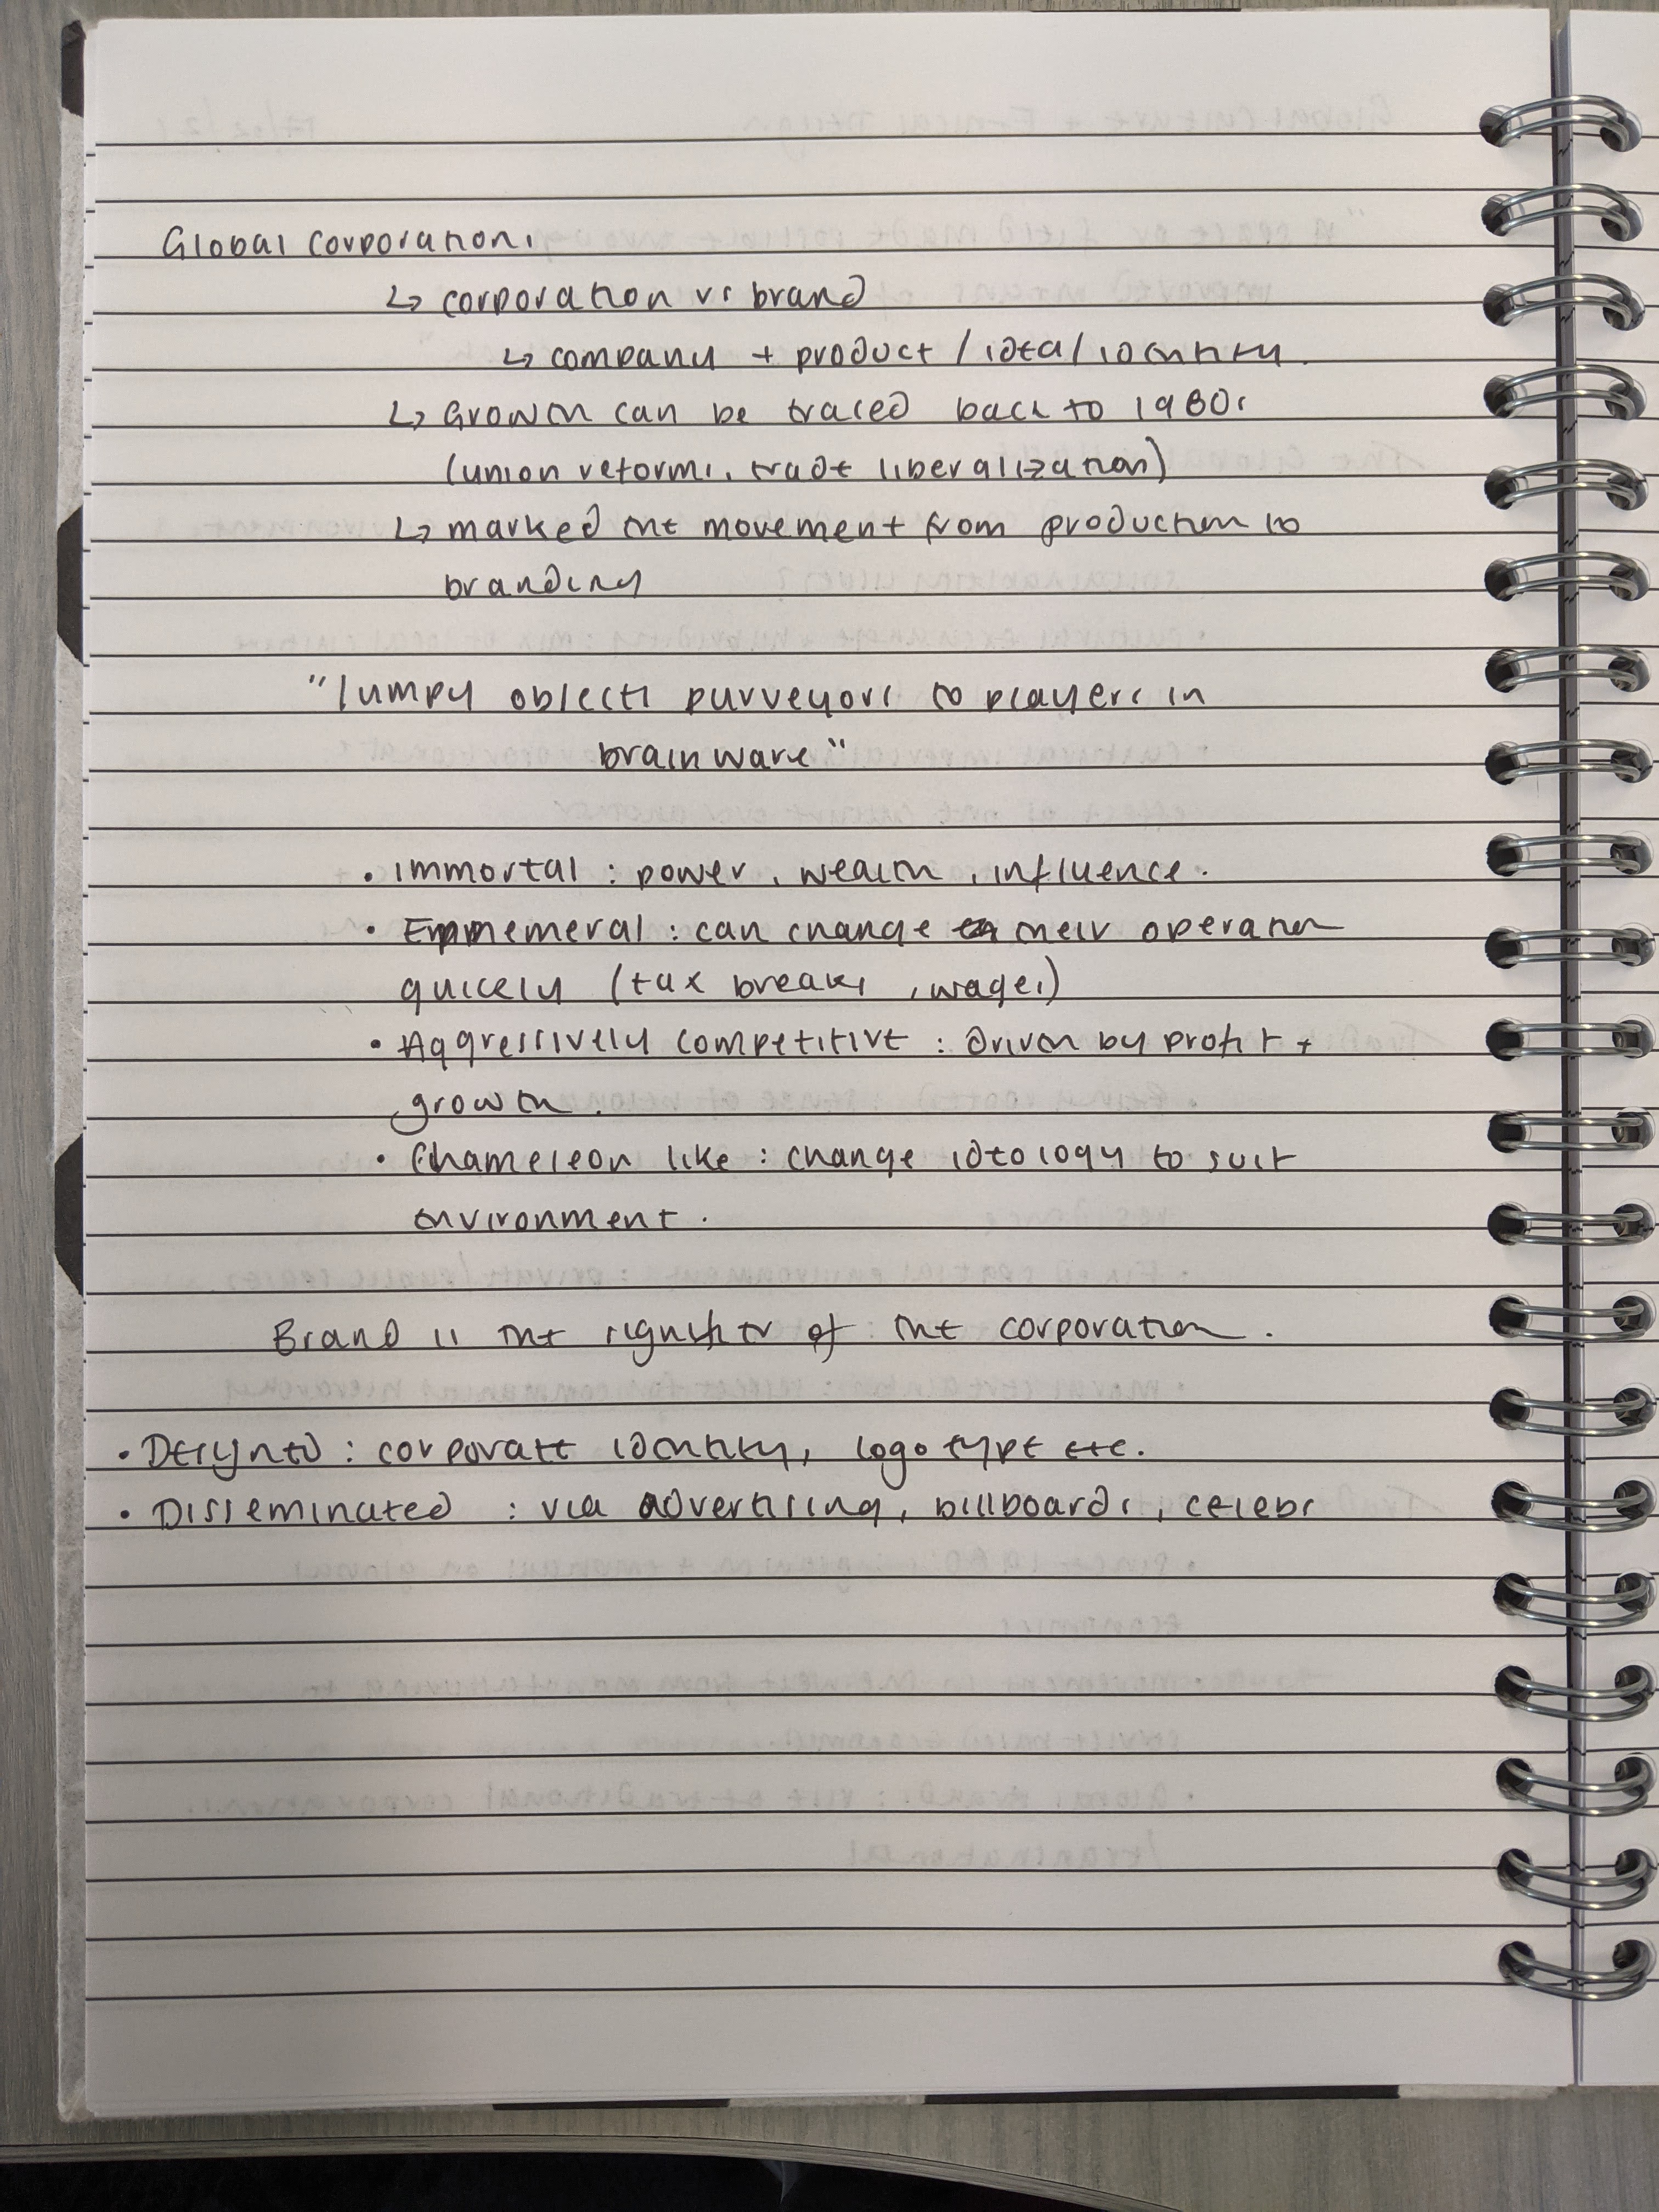 Global corporations
↳ corporation vs brand
↳ company + product / idea / identity.
↳ Growth can be traced back to 1980s
(union reforms, trade liberalization)
↳ marked the movement from production to
branding
"lumpy objects purveyors to players in
brainware"
• immortal : power, wealth, influence.
• Ephemeral : can change their operation
quickly (tax breaks, wages)
• Aggressively competitive : driven by profit +
growth.
• Chameleon like : change ideology to suit
environment.
Brand is the signifier of the corporation.
• Designed : corporate identity, logo type etc.
• Disseminated : via advertising, billboards, celebs